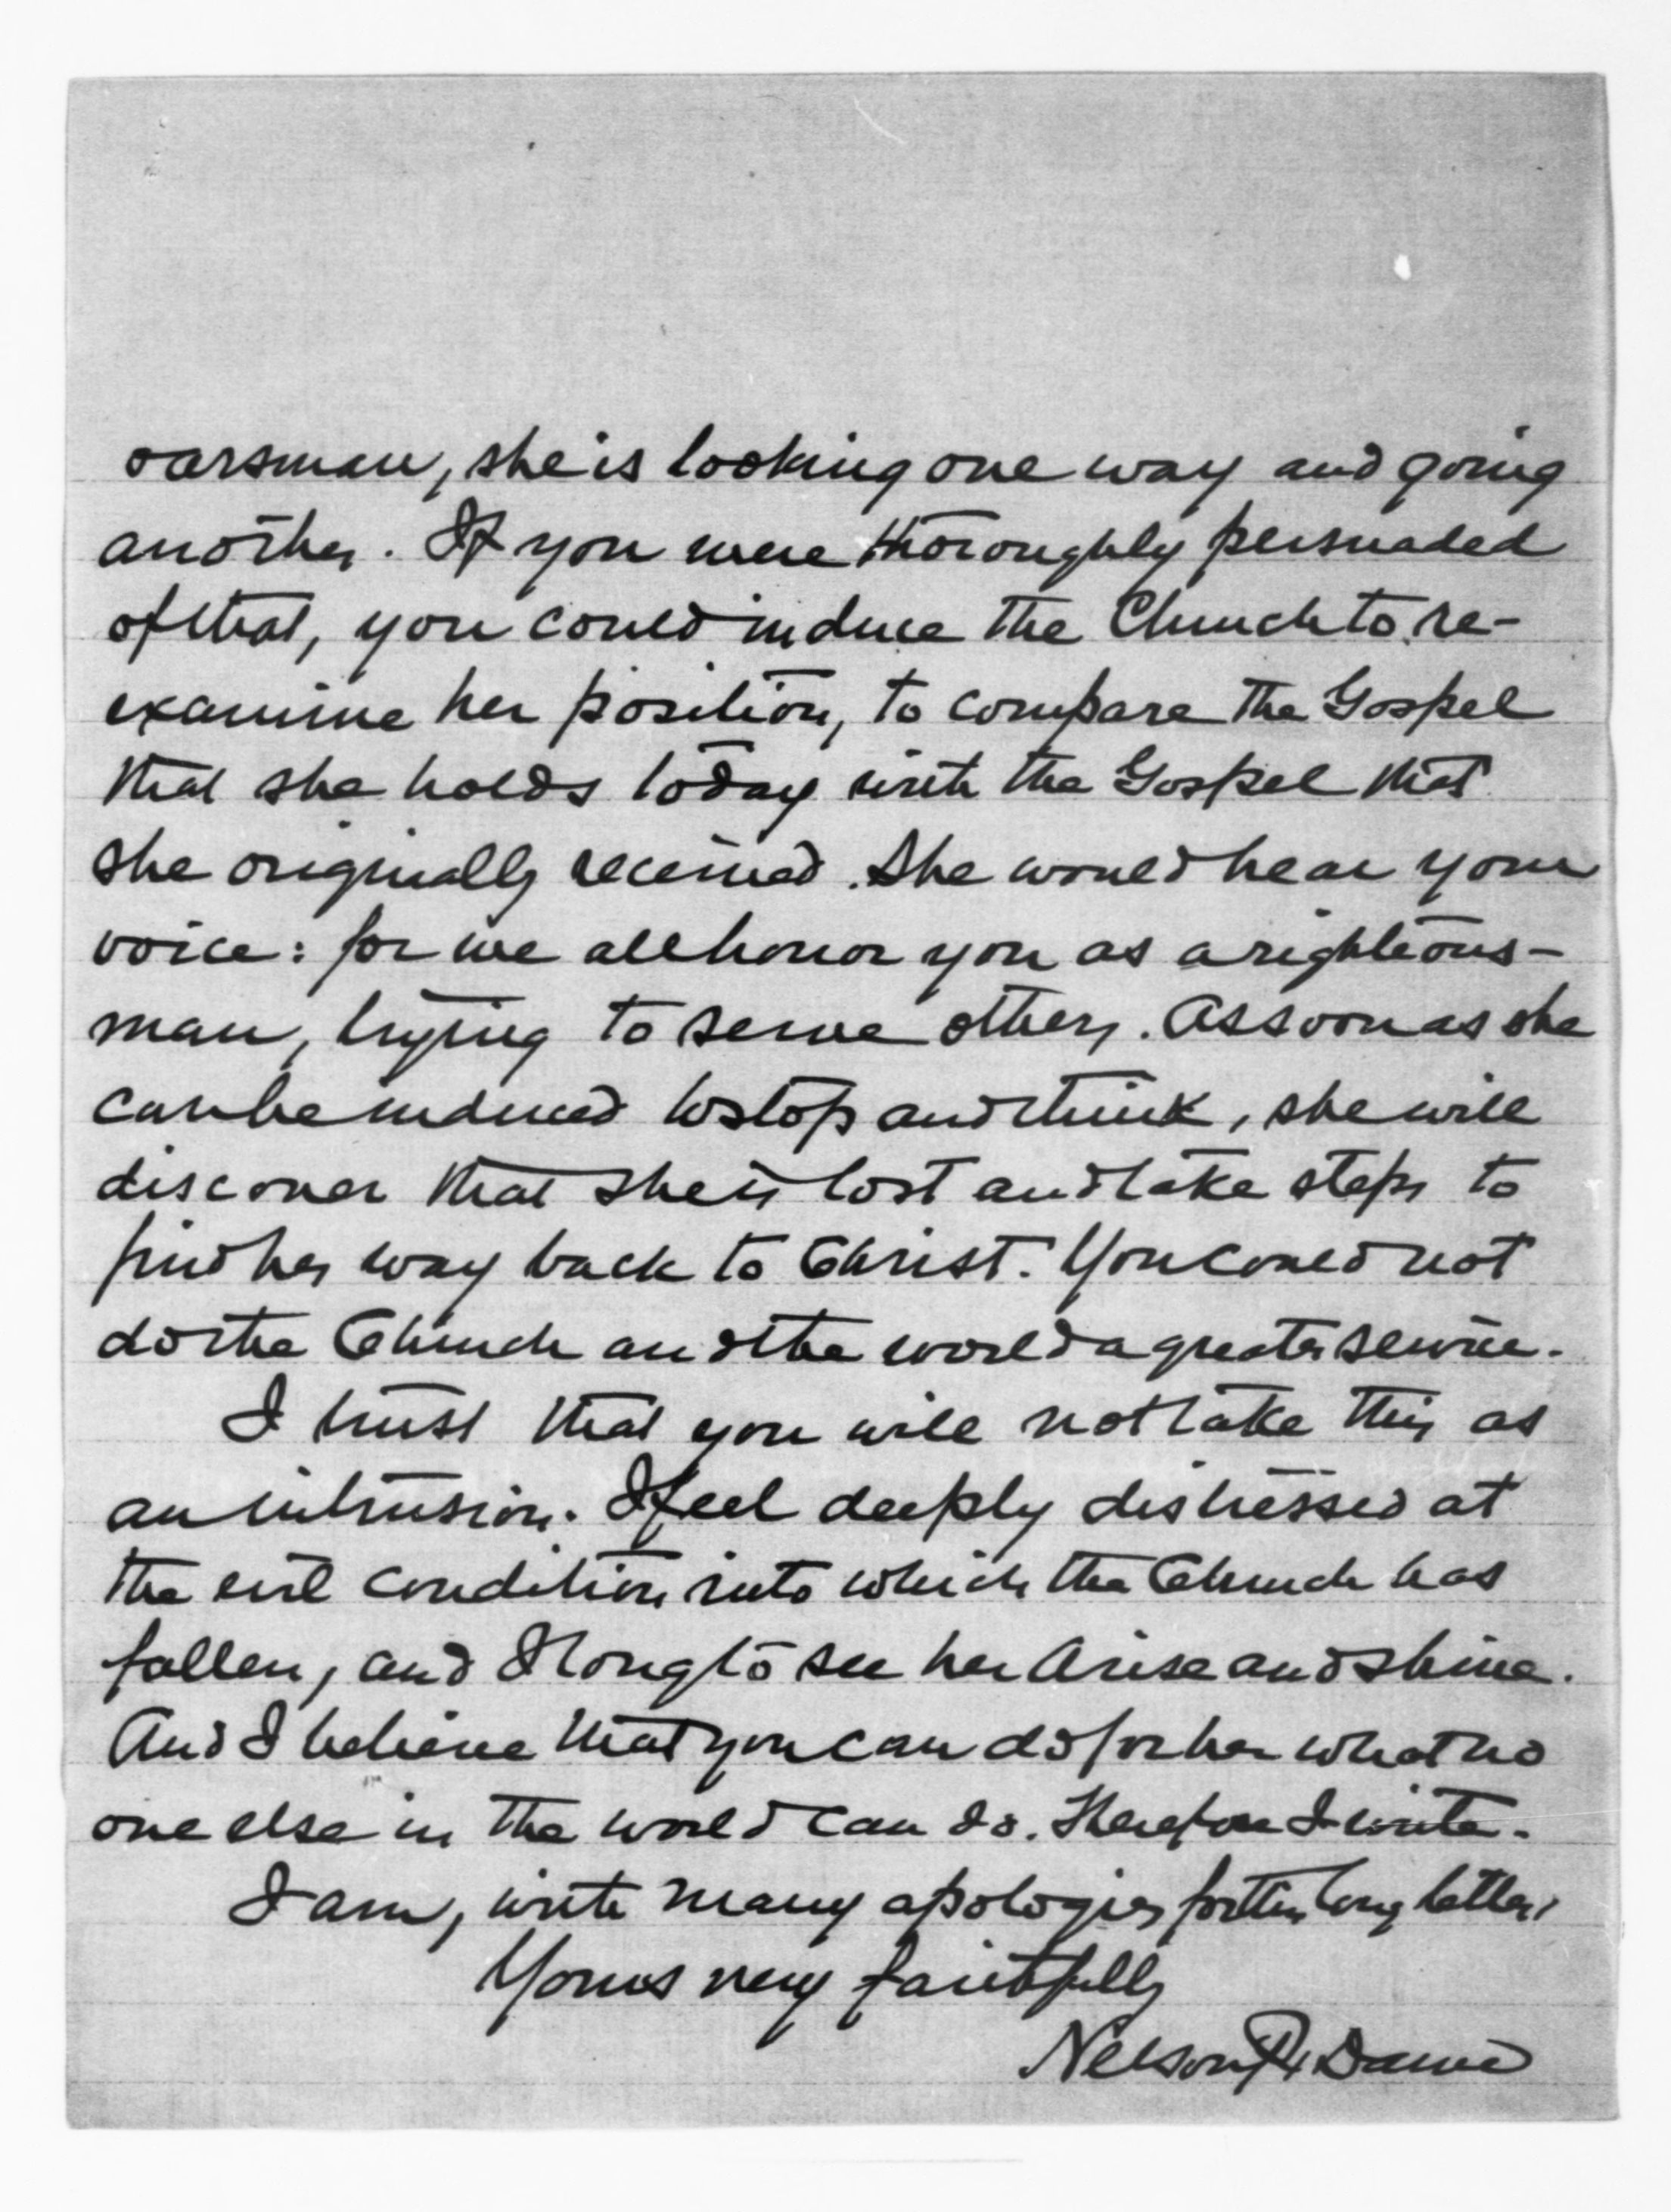 oarsman, she is looking one way and going
another. If you were thoroughly persuaded
of that, you could induce the Church to re-
examine her position, to compare the Gospel
that she holds today with the Gospel that
she originally received. She would hear your
voice: for we all honor you as a righteous-
man, trying to serve others. As soon as she
can be induced to stop and think, she will
discover that she is lost and take steps to
find her way back to Christ. You could not
do the Church and the world a greater service.
I trust that you will not take this as
an intrusion. I feel deeply distressed at
the evil condition into which the Church has
fallen, and I long to see her arise and shine.
And I believe that you can do for her what no
one else in the world can do. Therefore I write.
I am, with many apologies for this long letter,
Yours very faithfully
Nelson P. Dame